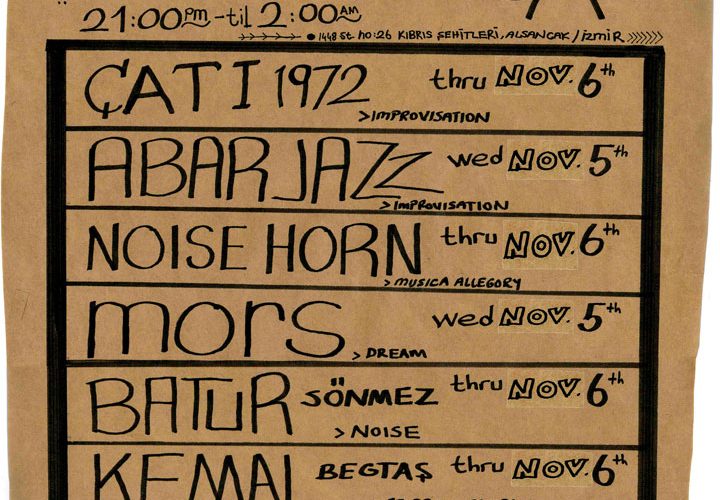 21:00PM - til 2:00AM
1448 St. no:26 KIBRIS ŞEHİTLERİ, ALSANCAK / İzmir
ÇATI 1972 thru NOV. 6th
>IMPROVISATION
ABARJAZZ wed NOV. 5th
>IMPROVISATION
NOISE HORN thru NOV. 6th
>MUSICA ALLEGORY
mors wed NOV. 5th
> DREAM
BATUR SÖNMEZ thru NOV. 6th
> NOISE
KEMAL BEGTAŞ thru NOV. 6th